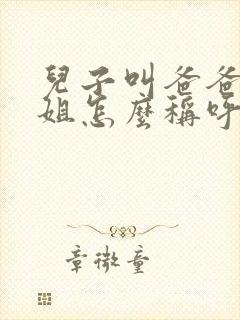 兒子叫爸爸
姐怎麼稱呼
章微童